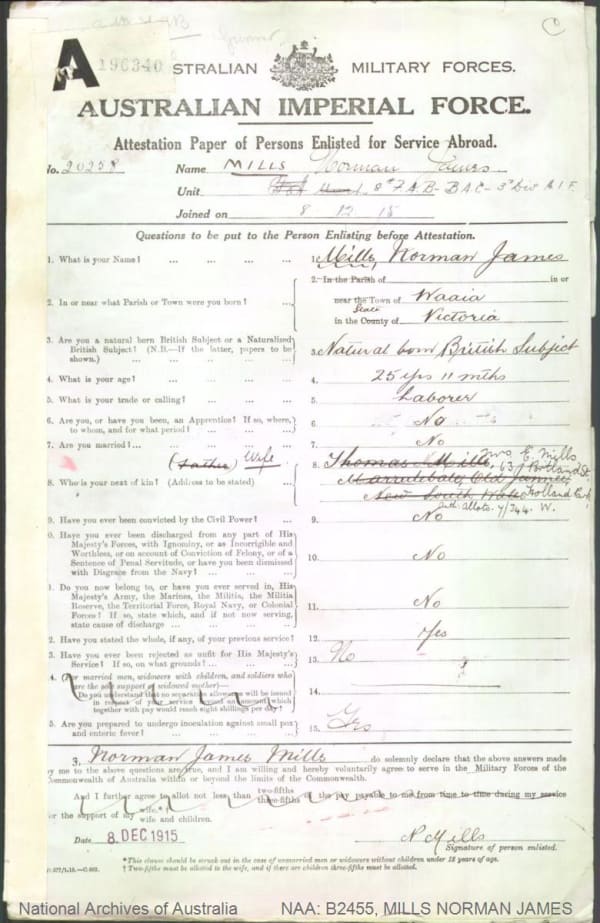 A 190340 STRALIAN MILITARY FORCES.
AUSTRALIAN IMPERIAL FORCE.
Attestation Paper of Persons Enlisted for Service Abroad.
No. 20258 Name MILLS Norman James
Unit 8th F.A.B- B.A.C- 3rd Div A.I.F.
Joined on 8 12 15
Questions to be put to the Person Enlisting before Attestation.
1. What is your Name? ... ... ... ... 1. Mills, Norman James
2. In the Parish of in or
2. In or near what Parish or Town were you born? ... near the Town of Waaia
State
in the County of Victoria
3. Are you a natural born British Subject or a Naturalized
British Subject? (N.B.—If the latter, papers to be
shown.) ... ... ... ... 3. Natural born British Subject
4. What is your age? ... ... ... ... 4. 25 yrs 11 mths
5. What is your trade or calling? ... ... ... 5. Laborer
6. Are you, or have you been, an Apprentice? If so, where,
to whom, and for what period? ... ... ... 6. No
7. Are you married? ... ... ... ... 7. No
(Father) Wife 8. Thomas Mills, Mrs. E. Mills
8. Who is your next of kin? (Address to be stated) ... 63 Portland St.
New South Wales
Auth. Allots. 7/344. W.
9. Have you ever been convicted by the Civil Power? ... 9. No
0. Have you ever been discharged from any part of His
Majesty's Forces, with Ignominy, or as Incorrigible and
Worthless, or on account of Conviction of Felony, or of a
Sentence of Penal Servitude, or have you been dismissed
with Disgrace from the Navy? ... ... ... 10. No
1. Do you now belong to, or have you ever served in, His
Majesty's Army, the Marines, the Militia, the Militia
Reserve, the Territorial Force, Royal Navy, or Colonial
Forces? If so, state which, and if not now serving,
state cause of discharge ... ... ... 11. No
2. Have you stated the whole, if any, of your previous service? 12. Yes
3. Have you ever been rejected as unfit for His Majesty's
Service? If so, on what grounds? ... ... ... 13. No
4. (For married men, widowers with children, and soldiers who
are the sole support of widowed mother)—
Do you understand that no separation allowance will be issued
in respect of your service beyond an amount which
together with pay would reach eight shillings per day? 14.
5. Are you prepared to undergo inoculation against small pox
and enteric fever? ... ... ... ... 15. Yes
I, Norman James Mills do solemnly declare that the above answers made
by me to the above questions are true, and I am willing and hereby voluntarily agree to serve in the Military Forces of the
Commonwealth of Australia within or beyond the limits of the Commonwealth.
And I further agree to allot not less than two-fifths three-fifths of the pay payable to me from time to time during my service
for the support of my wife.*† wife and children.
Date 8 DEC 1915 N Mills
Signature of person enlisted.
*This clause should be struck out in the case of unmarried men or widowers without children under 18 years of age.
† Two-fifths must be allotted to the wife, and if there are children three-fifths must be allotted.
National Archives of Australia NAA: B2455, MILLS NORMAN JAMES